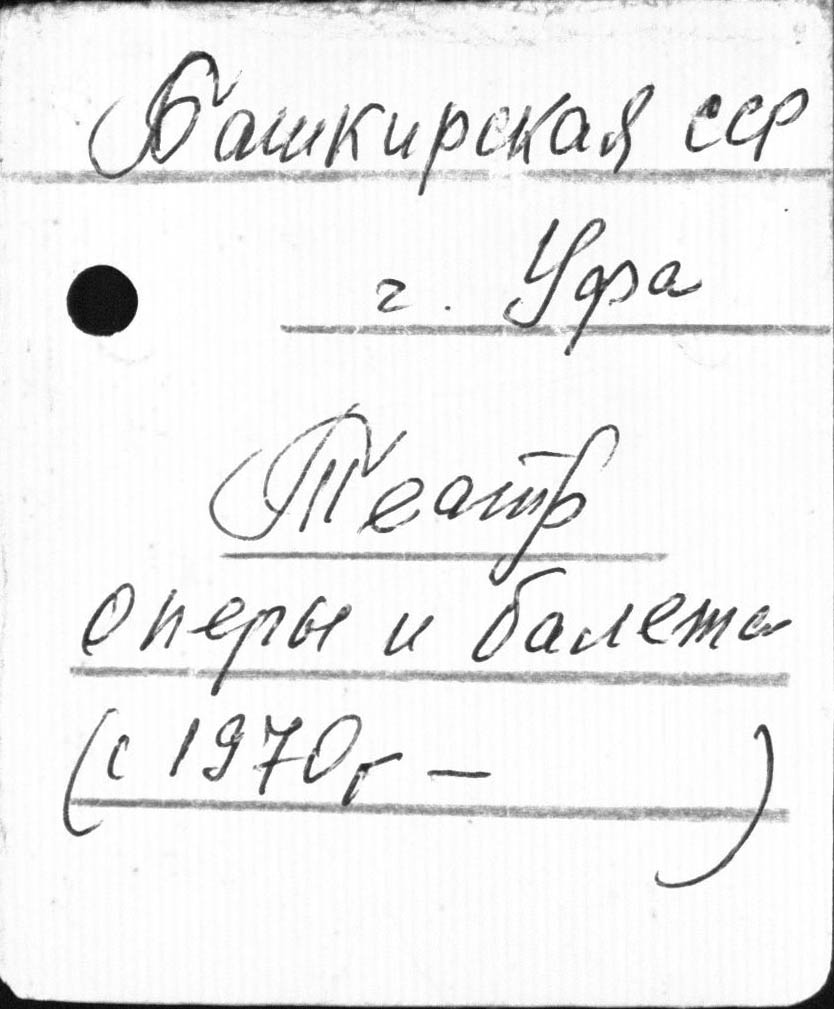 Башкирская ССР
г. Уфа
Театр
оперы и балета
(с 1970г — )